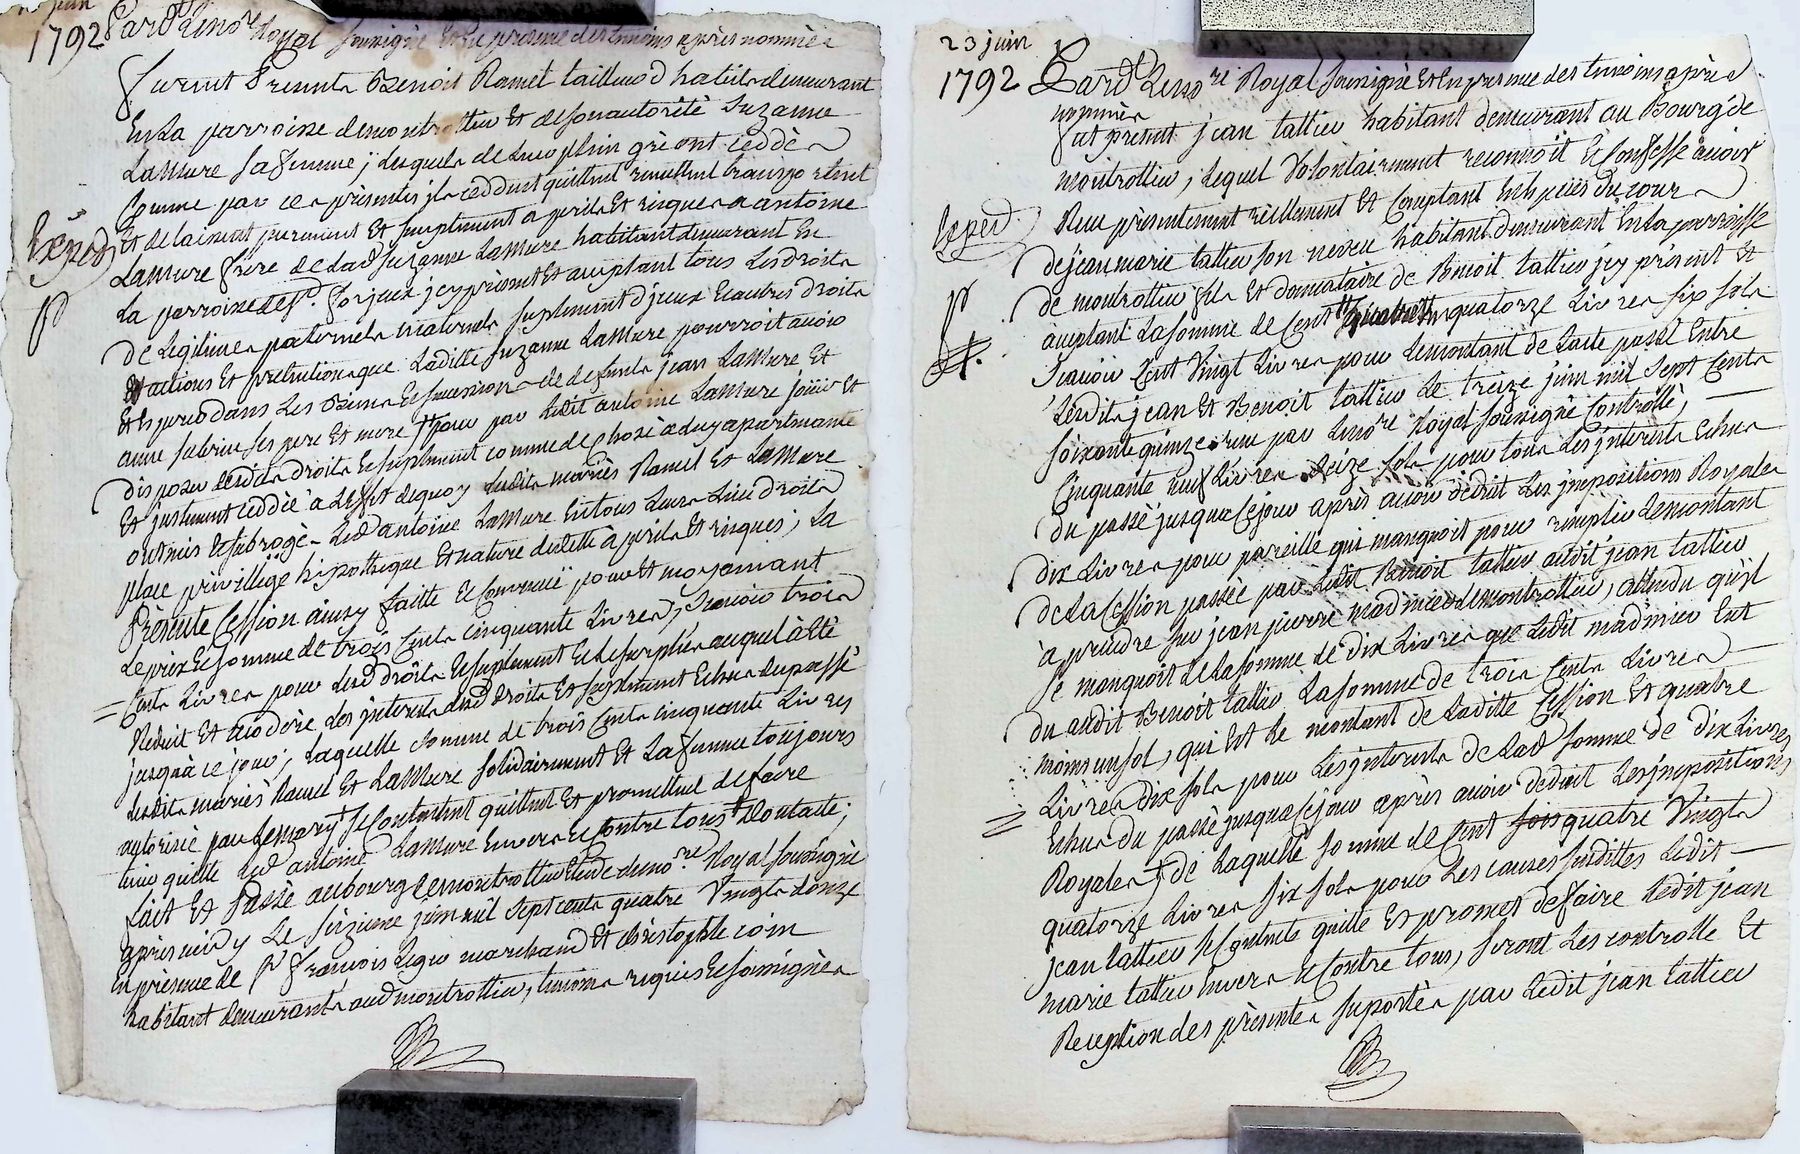 juin
1792 Pard.t Le no.re Royal soussigné et en presence des temoins après nommés
furent presents Benoit Ramel tailleur d'habits demeurant
En la parroisse de montrottier et de son autorité Suzanne
LaMure sa femme, lesquels de leur plein gré ont cèddé
Comme par ces présentes ils cèddent quittent remettent transportent
Expéd
Et delaissent purement et simplement a perils et risques a antoine
LaMure frère de lad. Suzanne LaMure habitant demeurant En
la parroisse de st. forjeux, icy présent et acceptant tous les droits
de Legitimes paternels maternels suplement d'yceux et autres droits
et actions et prétentions que laditte Suzanne LaMure pourroit avoir
et espérer dans les Biens et succession de defunts jean LaMure et
anne subrin ses pere et mere pour par ledit antoine LaMure jouir et
disposer desdits droits et suplement comme de chose à luy apartenante
Et justement cèddée à l'effet de quoy lesdits mariés Ramel et LaMure
ont mis et subrogé led. antoine LaMure en tous leurs lieu droits
place privillége hipothèque et nature de dette à perils et risques; La
Présente Cession ainsy faitte et Convenüe pour et moyennant
Le prix et somme de trois Cents cinquante Livres, sçavoir trois
Cents Livres pour lesd. droits et suplement et le surplus auquel à été
Reduit et modéré les interets desd. droits et suplement echus du passé
jusqu'à ce jour; laquelle somme de trois Cents cinquante Livres
lesdits mariés Ramel et LaMure solidairement et La femme toujours
autorisée par son mary se Contentent quittent et promettent de faire
tenir quitte led. antoine LaMure Envers et Contre tous; dont acte;
fait et passé au bourg de montrottier Etude du no.re Royal soussigné
après midy le seizieme juin mil sept cents quatre Vingts douze
En présence de Sr. françois Legros marchand et christophle coin
habitant demeurants aud. montrottier, temoins requis et soussignés
23 juin
1792 Pard.t Le no.re Royal soussigné et en presence des temoins après
nommés
fut présent jean tattieu habitant demeurant au Bourg de
montrottier, lequel Volontairement reconnoit et Confesse avoir
Expéd
Reçu présentement réellement et Comptant En espèces du cour
de jean marie tattieu son neveu habitant demeurant En la parroisse
de montrottier fils et donnataire de Benoit tattieu icy présent et
acceptant La somme de Cent quatorze Livres six sols
sçavoir Cent Vingt Livres pour le montant de l'acte passé Entre
lesdits jean et Benoit tattieu Le treize juin mil sept Cents
soixante quinze reçu par le no.re Royal soussigné Controllé,
Cinquante neuf Livres seize sols pour tous les interets Echus
du passé jusqu'à ce jour après avoir déduit les impositions Royales
dix Livres pour pareille qui manquoit pour remplir le montant
de la Cession passée par ledit Benoit tattieu audit jean tattieu
à prendre sur jean pierre madinier de montrottier, attendu qu'il
se manquoit de la somme de dix Livres que ledit madinier Ent
du audit Benoit tattieu La somme de trois Cents Livres
moins un sol, qui est le montant de laditte Cession et quatre
Livres dix sols pour les interets de lad. somme de dix Livres
Echus du passé jusqu'à ce jour après avoir déduit les impositions
Royales; de laquelle somme de Cent quatre Vingts
quatorze Livres six sols pour les causes susdittes ledit
jean tattieu se Contente quitte et promet de faire ledit jean
marie tattieu Envers et Contre tous, seront les controlle et
Reception des présentes suportés par ledit jean tattieu